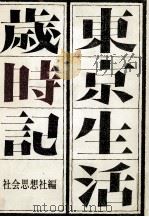 東京生活
歳時記
社会思想社編